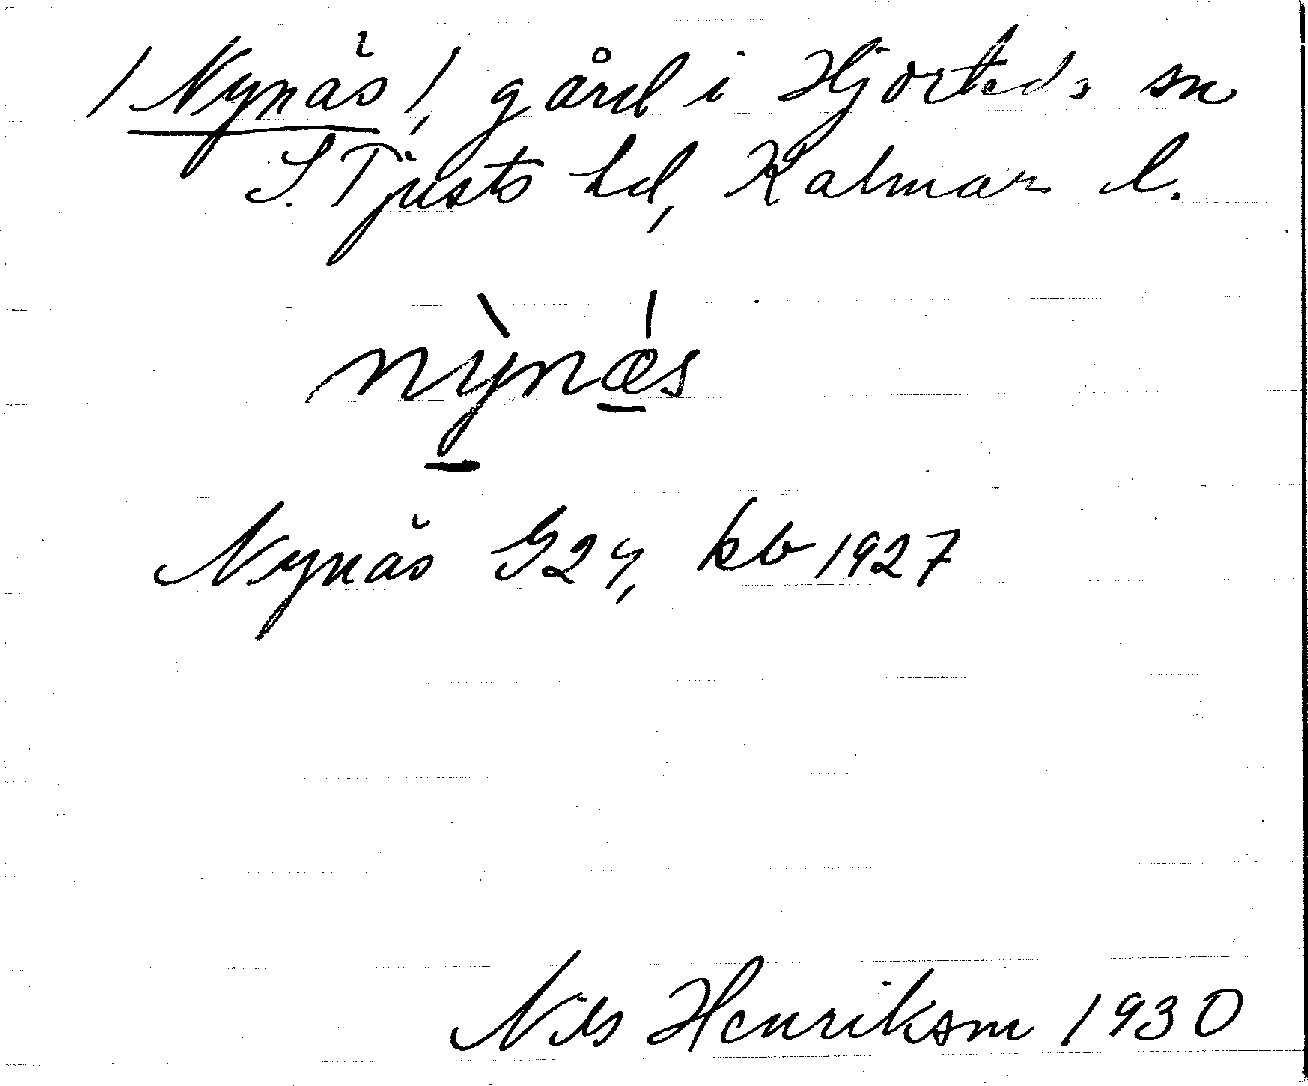 /Nynäs/, gård i Hjorteds sn
S. Tjusts hd, Kalmar l.
nỳnǽs
Nynäs G24, kb 1927
Nils Henriksson 1930